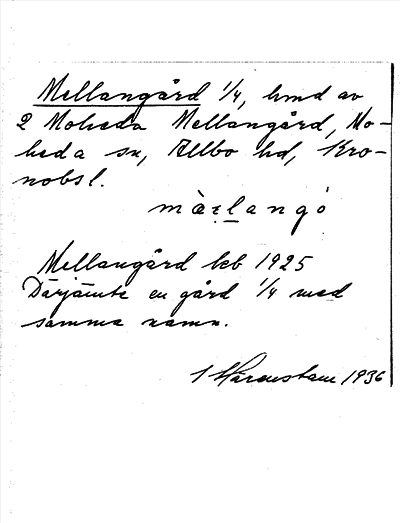 Mellangård 1/4, hmd av
2 Moheda Mellangård, Mo-
heda sn, Allbo hd, Kro-
nobs l.
mæ̀langó
Mellangård kb 1925
Därjämte en gård 1/4 med
samma namn.
Härenstam 1936